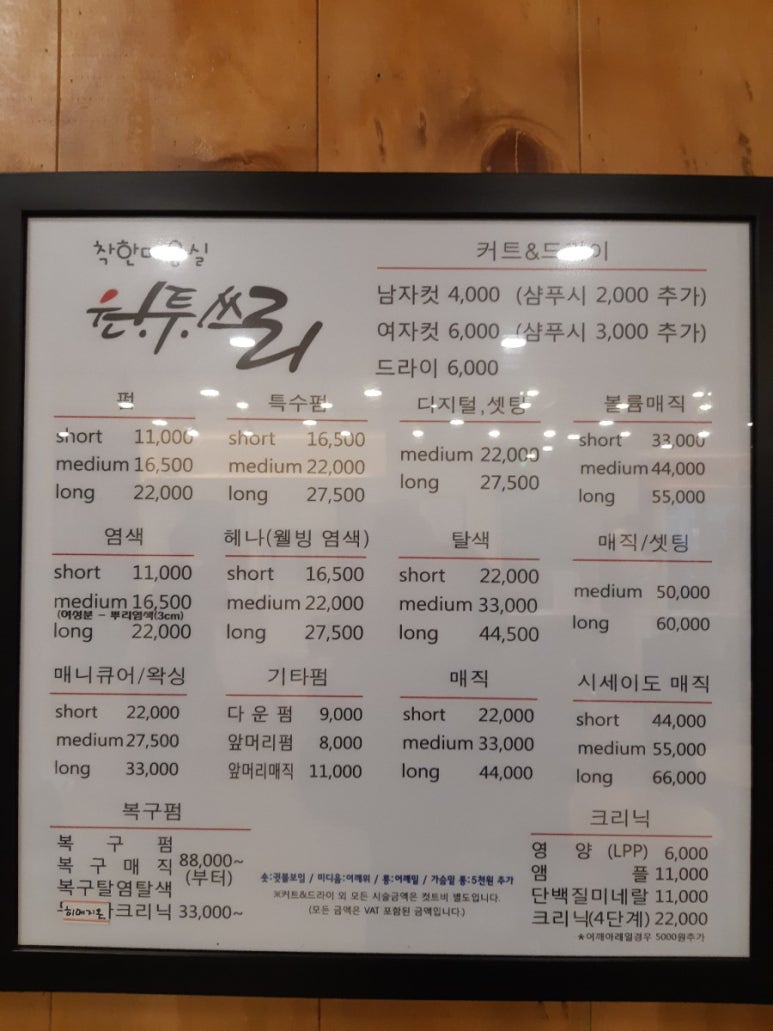 착한미용실
원.투.쓰리
커트&드라이
남자컷 4,000 (샴푸시 2,000 추가)
여자컷 6,000 (샴푸시 3,000 추가)
드라이 6,000
펌
short 11,000
medium 16,500
long 22,000
특수펌
short 16,500
medium 22,000
long 27,500
디지털,셋팅
medium 22,000
long 27,500
볼륨매직
short 33,000
medium 44,000
long 55,000
염색
short 11,000
medium 16,500
(여성분 - 뿌리염색(3cm)
long 22,000
헤나(웰빙 염색)
short 16,500
medium 22,000
long 27,500
탈색
short 22,000
medium 33,000
long 44,500
매직/셋팅
medium 50,000
long 60,000
매니큐어/왁싱
short 22,000
medium 27,500
long 33,000
기타펌
다운펌 9,000
앞머리펌 8,000
앞머리매직 11,000
매직
short 22,000
medium 33,000
long 44,000
시세이도 매직
short 44,000
medium 55,000
long 66,000
복구펌
복구펌
복구매직 88,000~
복구탈염탈색 (부터)
크리닉 33,000~
숏:귓볼보임 / 미디움:어깨위 / 롱:어깨밑 / 가슴밑 롱:5천원 추가
※커트&드라이 외 모든 시술금액은 컷트비 별도입니다.
(모든 금액은 VAT 포함된 금액입니다.)
크리닉
영양 (LPP) 6,000
앰플 11,000
단백질미네랄 11,000
크리닉(4단계) 22,000
★어깨아래일경우 5000원추가